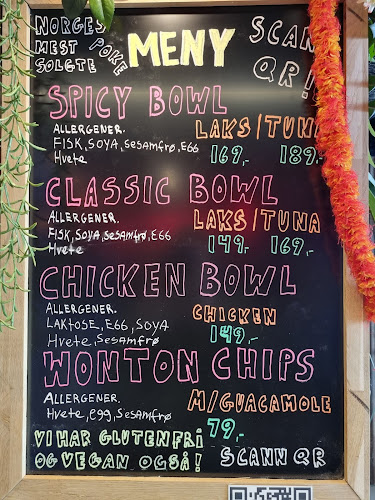 NORGES
MEST POKE
SOLGTE
MENY
SCANN
QR!
SPICY BOWL
ALLERGENER.
FISK, SOYA, SesamFrø, E66
Hvete
LAKS/TUNA
169,- 189,-
CLASSIC BOWL
ALLERGENER.
FISK, SOYA, sesamfrø, E66
Hvete
LAKS/TUNA
149,- 169,-
CHICKEN BOWL
ALLERGENER.
LAKtOSE, E66, SOYA
Hvete, Sesamfrø
CHICKEN
149,-
WONTON CHIPS
ALLERGENER.
Hvete, egg, Sesamfrø
M/GUACAMOLE
79,-
VI HAR GLUTENFRI
OG VEGAN OGSÅ!
SCANN QR